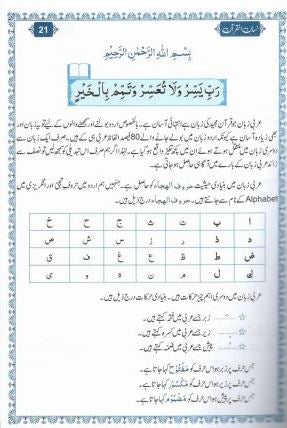 لسان القرآن
21
بِسْمِ اللهِ الرَّحْمٰنِ الرَّحِيْمِ
رَبِّ يَسِّرْ وَلَا تُعَسِّرْ وَتَمِّمْ بِالْخَيْرِ
عربی زبان جو قرآن مجید کی زبان ہے انتہائی آسان ہے۔ بالخصوص اردو بولنے اور لکھنے والوں کے لیے تو یہ زبان اور
بھی زیادہ آسان ہے کیونکہ اردو زبان میں بولے جانے والے 80 فیصد الفاظ عربی ہی کے ہیں۔ صرف ایک زبان سے
دوسری زبان میں منتقل ہوتے ہوئے ان میں کچھ تغیر واقع ہو گیا ہے۔ لہٰذا اگر ہم صرف اس تبدیلی کو سمجھ لیں تو نصف سے
زائد عربی زبان کے بارے میں آگاہی حاصل ہو جاتی ہے۔
عربی زبان میں بنیادی حیثیت حروف الهجاء کو حاصل ہے۔ جنہیں ہم اردو میں حروف تہجی اور انگریزی میں
Alphabet کے نام سے جانتے ہیں۔ حروف الهجاء درج ذیل ہیں۔
ا ب ت ث ج ح خ
د ذ ر ز س ش ص
ض ط ظ ع غ ف ق
ك ل م ن ه و ى
عربی زبان میں دوسری اہم چیز حرکات ہیں۔ بنیادی حرکات درج ذیل ہیں۔
زبر جسے عربی میں فتحہ کہتے ہیں۔
زیر جسے عربی میں کسرہ کہتے ہیں۔
پیش جسے عربی میں ضمہ کہتے ہیں۔
جس حرف پر زبر ہو اس حرف کو مَفْتُوْح کہا جاتا ہے۔
جس حرف پر زیر ہو اس حرف کو مَكْسُوْر کہا جاتا ہے۔
جس حرف پر پیش ہو اس حرف کو مَضْمُوْم کہا جاتا ہے۔